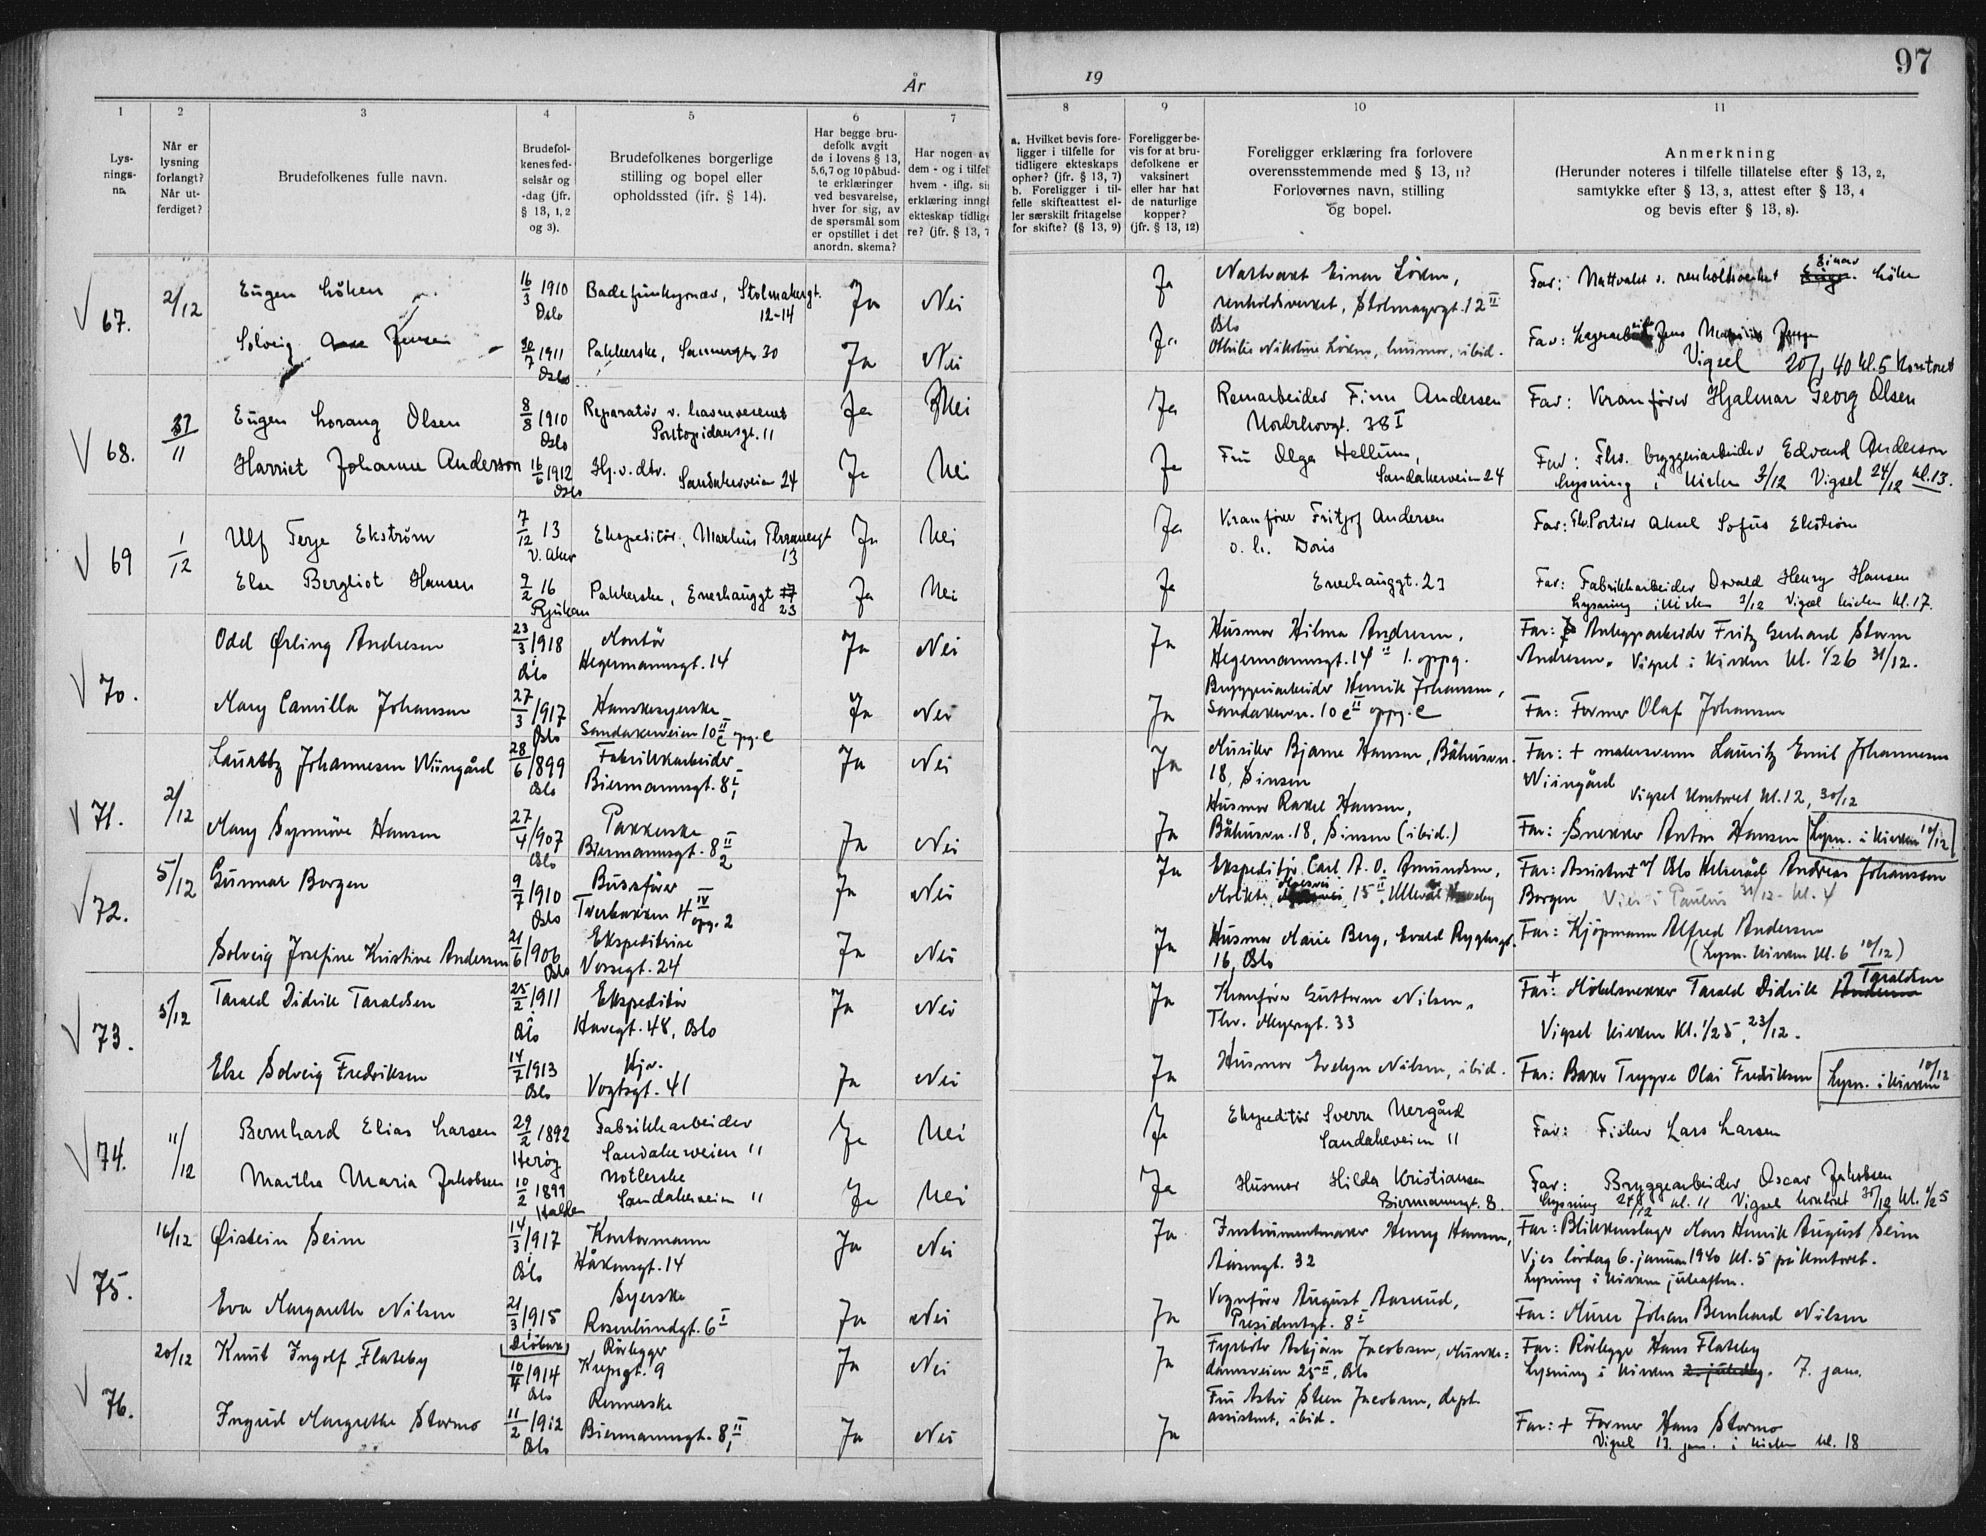 97
År
19
1
2
3
4
5
6
7
8
9
10
11
Lys-
nings-
nr.
Når er
lysning
forlangt?
Når ut-
ferdiget?
Brudefolkenes fulle navn.
Brudefol-
kenes fød-
selsår og
-dag (jfr.
§ 13, 1, 2
og 3).
Brudefolkenes borgerlige
stilling og bopel eller
opholdssted (jfr. § 14).
Har begge bru-
defolk avgit
de i lovens § 13,
5,6,7 og 10 påbud-
te erklæringer
ved besvarelse,
hver for sig, av
de spørsmål som
er opstillet i det
anordn. skema?
Har nogen av
dem - og i tilfel
hvem - iflg. si
erklæring inng
ekteskap tidlig
re? (jfr. § 13, 7
a. Hvilket bevis fore-
ligger i tilfelle for
tidligere ekteskaps
ophør? (jfr. § 13, 7)
b. Foreligger i til-
felle skifteattest el-
ler særskilt fritagelse
for skifte? (§ 13, 9)
Foreligger be-
vis for at bru-
defolkene er
vaksinert
eller har hat
de naturlige
kopper?
(jfr. § 13, 12)
Foreligger erklæring fra forlovere
overensstemmende med § 13, 11?
Forlovernes navn, stilling
og bopel.
Anmerkning
(Herunder noteres i tilfelle tillatelse efter § 13, 2,
samtykke efter § 13, 3, attest efter § 13, 4
og bevis efter § 13, 8).
67. 2/12 Eugen Løken 16/3 1910 Oslo Stolmakergt. 12-14 Ja Nei Ja
renholdsverket, 12 II Oslo Far: Einar Løken
Solveig Jensen 30/7 1911 Oslo Pakkerske, 30 Ja Nei Ja
husmor, ibid. Far: Jens
Vigsel 20/1 40 kl. 5 Kontoret
68. 11 Eugen Olsen 8/8 1910 Oslo Reparatør v. Pontopidansgt. 11 Ja Nei Ja
Finn Andersen 38 I Far: Kranfører Hjalmar Georg Olsen
Harriet Johanne Anderson 16/6 1912 Oslo Hj. v. dtv. Sandakerveien 24 Ja Nei Ja
Fru Olga Hellum, Sandakerveien 24 Far: Fhv. bryggeriarbeider Edvard Anderson
Lysning i kirken 3/12 Vigsel 24/12 kl. 13.
69 1/12 Ulf Terje Ekstrøm 7/12 13 V. Aker Ekspeditør, Markus Thranesgt 13 Ja Nei Ja
Kranfører Fritjof Andersen
o. h. Doris Far: Fhv. Portier Aksel Sofus Ekstrøm
Else Bergliot Hansen 9/2 16 Rjukan Pakkerske, Enerhauggt 23 Ja Nei Ja
Enerhauggt. 23 Far: Fabrikkarbeider Osvald Henry Hansen
Lysning i kirken 3/12 Vigsel kirken kl. 17.
70. Odd Ørling Andresen 23/3 1918 Oslo Montør Hegermannsgt. 14 Ja Nei Ja
Husmor Hilma Andresen, Hegermannsgt. 14 II 1. oppg. Far: Anleggsarbeider Fritz Gerhard Storm
Andresen. Vigsel i kirken kl. 1/26 31/12.
Mary Camilla Johansen 27/3 1917 Oslo Hanskesyerske Sandakerveien 10 c II opg. c Ja Nei Ja
Bryggeriarbeider Henrik Johansen, Sandakerv. 10 c II oppg. c Far: Former Olaf Johansen
71. 2/12 Lauritz Johannesen Wiingård 28/6 1899 Oslo Fabrikkarbeider Biermannsgt. 8 I, Ja Nei Ja
Musiker Bjarne Hansen, Båhusvn. 18, Sinsen Far: + malersvenn Lauritz Emil Johannesen
Wiingård Vigsel Kontoret kl. 12, 30/12
Mary Synnøve Hansen 27/4 1907 Oslo Pakkerske Biermannsgt. 8 II 2 Ja Nei Ja
Husmor Rakel Hansen, Båhusvn. 18, Sinsen (ibid.) Far: Snekker Anton Hansen Lysn. i kirken 10/12
72. 5/12 Gunnar Borgen 9/7 1910 Oslo Bussfører Tverbakken 4 IV opg. 2 Ja Nei Ja
Ekspeditør Carl A. O. Amundsen, 15 II, Ullevål Haveby Far: Assistent v/ Oslo Andreas Johanssen
Borgen Vies i Paulus 31/12 - kl. 4
Solveig Josefine Kristine Andersen 21/6 1906 Oslo Ekspeditrise Vossegt. 24 Ja Nei Ja
Husmor Marie Berg, Evald Ryghsgt. 16, Oslo Far: Kjøpmann Alfred Andersen
(Lysn. kirken kl. 6 10/12)
73. 5/12 Tarald Didrik Taraldsen 25/2 1911 Oslo Ekspeditør Havegt. 48, Oslo Ja Nei Ja
Kranfører Guttorm Nilsen, Thv. Meyersgt. 33 Far: + Møbelsnekker Tarald Didrik Taraldsen
Vigsel kirken kl. 1/25, 23/12.
Else Solveig Fredriksen 14/7 1913 Oslo Hjv. Vogtsgt. 41 Ja Nei Ja
Husmor Evelyn Nilsen, ibid. Far: Baker Trygve Olai Fredriksen Lysn. i kirken 10/12
74. 11/12 Bernhard Elias Larsen 29/2 1892 Herøy Fabrikkarbeider Sandakerveien 11 Ja Nei Ja
Ekspeditør Sverre Nergård Sandakerveien 11 Far: Fisker Lars Larsen
Martha Maria Jakobsen 10/2 1899 Halden Sandakerveien 11 Ja Nei Ja
Husmor Hilda Kristiansen Biermannsgt. 8. Far: Bryggearbeider Oscar Jakobsen
Lysning 24/12 kl. 11 Vigsel kontoret 30/12 kl. 1/2 5
75. 16/12 Øistein Seim 14/3 1917 Oslo Kontormann Håkonsgt. 14 Ja Nei Ja
Instrumentmaker Henry Hansen, 32 Far: Blikkenslager Mons Henrik August Seim
Vies lørdag 6. januar 1940 kl. 5 på kontoret.
Lysning i kirken juleaften.
Eva Margarethe Nilsen 21/3 1915 Drøbak Syerske Rosenlundgt. 6 I Ja Nei Ja
Vognfører August Aaserud, Presidentgt. 8 I Far: Murer Johan Bernhard Nilsen
76. 20/12 Knut Ingolf Flateby 10/4 1914 Oslo Rørlegger 9 Ja Nei Ja
Fyrbøter Asbjørn Jacobsen, Munke-
damsveien 25 II, Oslo Far: Rørlegger Hans Flateby
Lysning i kirken 2. juledag. 7. jan.
Ingrid Margrethe Stormo 11/2 1912 Oslo Biermannsgt. 8 II, Ja Nei Ja
Fru Astri Steen Jacobsen, dept.
assistent, ibid. Far: + Former Hans Stormo
Vigsel 13. jan. i kirken kl. 18